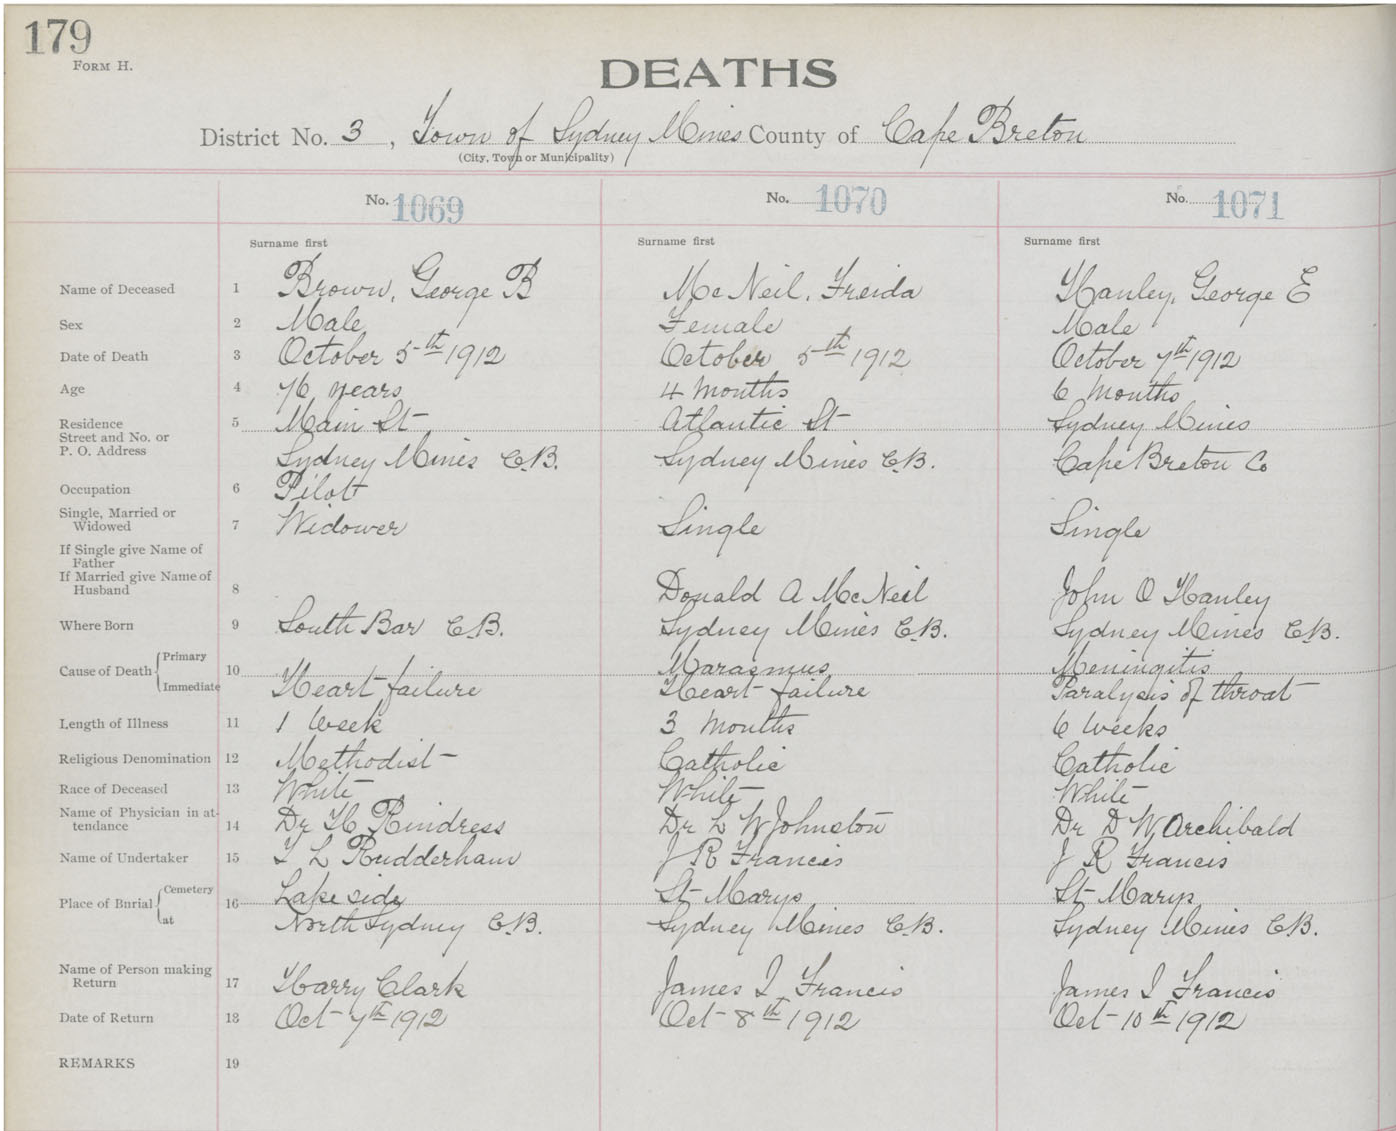 179
FORM H.
DEATHS
District No. 3, Town of Sydney Mines County of Cape Breton
(City, Town or Municipality)
No. 1069 No. 1070 No. 1071
Surname first Surname first Surname first
Name of Deceased 1 Brown, George B McNeil, Freida Hanley, George E
Sex 2 Male Female Male
Date of Death 3 October 5th 1912 October 5th 1912 October 7th 1912
Age 4 76 years 4 months 6 months
Residence 5 Main St Atlantic St Sydney Mines
Street and No. or
P. O. Address Sydney Mines C.B. Sydney Mines C.B. Cape Breton Co
Occupation 6 Pilot
Single, Married or
Widowed 7 Widower Single Single
If Single give Name of
Father
If Married give Name of
Husband 8 Donald A McNeil John O Hanley
Where Born 9 South Bar C.B. Sydney Mines C.B. Sydney Mines C.B.
Primary Marasmus Meningitis
Cause of Death 10
Immediate Heart failure Heart failure Paralysis of throat
Length of Illness 11 1 Week 3 months 6 weeks
Religious Denomination 12 Methodist Catholic Catholic
Race of Deceased 13 White White White
Name of Physician in at-
tendance 14 Dr H Rindress Dr L W Johnston Dr D W Archibald
Name of Undertaker 15 T L Rudderham J R Francis J R Francis
Cemetery Lake side St Marys St Marys
Place of Burial 16
at North Sydney C.B. Sydney Mines C.B. Sydney Mines C.B.
Name of Person making
Return 17 Harry Clark James I Francis James I Francis
Date of Return 18 Oct 7th 1912 Oct 8th 1912 Oct 10th 1912
REMARKS 19